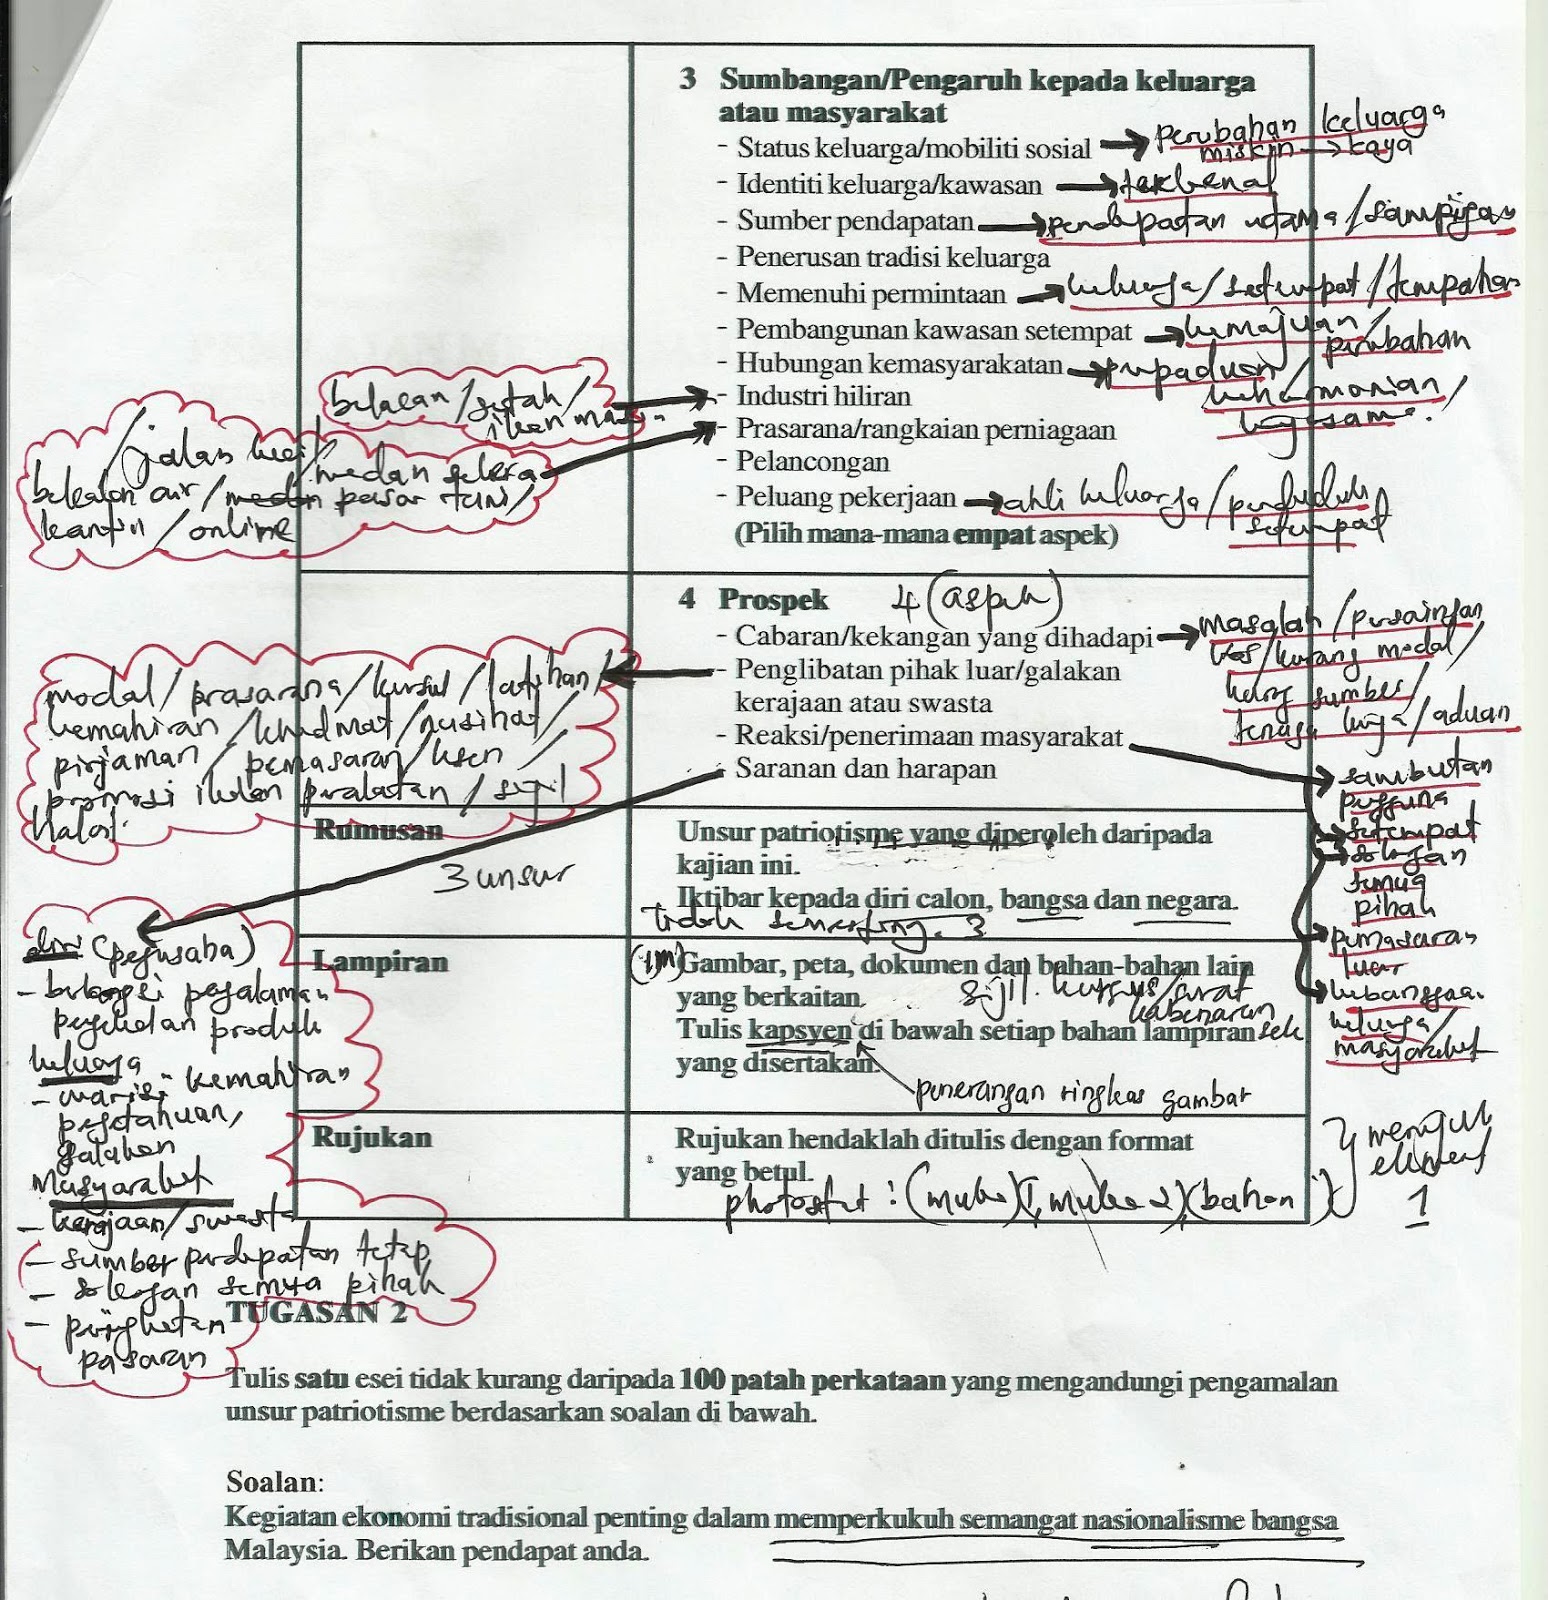 3 Sumbangan/Pengaruh kepada keluarga
atau masyarakat
- Status keluarga/mobiliti sosial
perubahan keluarga
miskin → kaya
- Identiti keluarga/kawasan
terkenal
- Sumber pendapatan
pendapatan utama/sampingan
- Penerusan tradisi keluarga
- Memenuhi permintaan
keluarga/setempat/tempahan
- Pembangunan kawasan setempat
kemajuan/
perubahan
- Hubungan kemasyarakatan
perpaduan
keharmonian/
kerjasama
- Industri hiliran
belacan/
- Prasarana/rangkaian perniagaan
/jalan
/medan selera
/pasar tani/
kantin/online
- Pelancongan
- Peluang pekerjaan
ahli keluarga/penduduk
setempat
(Pilih mana-mana empat aspek)
4 Prospek
4 (aspek)
- Cabaran/kekangan yang dihadapi
masalah/persaingan
kos/kurang modal/
kurang sumber/
tenaga kerja/aduan
- Penglibatan pihak luar/galakan
kerajaan atau swasta
modal/prasarana/kursus/latihan/
kemahiran/khidmat/nasihat/
pinjaman/pemasaran/
promosi iklan peralatan/sijil
halal
- Reaksi/penerimaan masyarakat
sambutan
pengguna
setempat
sokongan
semua
pihak
pemasaran
luar
kebanggaan
keluarga/
masyarakat
- Saranan dan harapan
diri (pengusaha)
- berkongsi pengalaman
pengeluaran produk
keluarga
- warisi kemahiran
pengetahuan,
galakan
Masyarakat
- kerajaan/swasta
- sumber pendapatan tetap
- sokongan semua pihak
- peringkatan
pasaran
Rumusan
3 unsur
Unsur patriotisme yang diperoleh daripada
kajian ini.
Iktibar kepada diri calon, bangsa dan negara.
tidak semestinya 3
Lampiran
(1m)
Gambar, peta, dokumen dan bahan-bahan lain
yang berkaitan.
sijil kursus/surat
kebenaran
Tulis kapsyen di bawah setiap bahan lampiran
sek
yang disertakan.
penerangan ringkas gambar
Rujukan
Rujukan hendaklah ditulis dengan format
yang betul.
photostat : (muka 1, muka 2) (bahan)
mengikut
element
1
TUGASAN 2
Tulis satu esei tidak kurang daripada 100 patah perkataan yang mengandungi pengamalan
unsur patriotisme berdasarkan soalan di bawah.
Soalan:
Kegiatan ekonomi tradisional penting dalam memperkukuh semangat nasionalisme bangsa
Malaysia. Berikan pendapat anda.